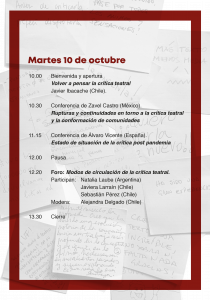 Martes 10 de octubre
10.00 Bienvenida y apertura
Volver a pensar la crítica teatral
Javier Ibacache (Chile).
10.30 Conferencia de Zavel Castro (México)
Rupturas y continuidades en torno a la crítica teatral
y la conformación de comunidades
11.15 Conferencia de Álvaro Vicente (España)
Estado de situación de la crítica post pandemia
12.00 Pausa
12.20 Foro: Modos de circulación de la crítica teatral.
Participan: Natalia Laube (Argentina)
Javiera Larraín (Chile)
Sebastián Pérez (Chile)
Modera: Alejandra Delgado (Chile)
13.30 Cierre